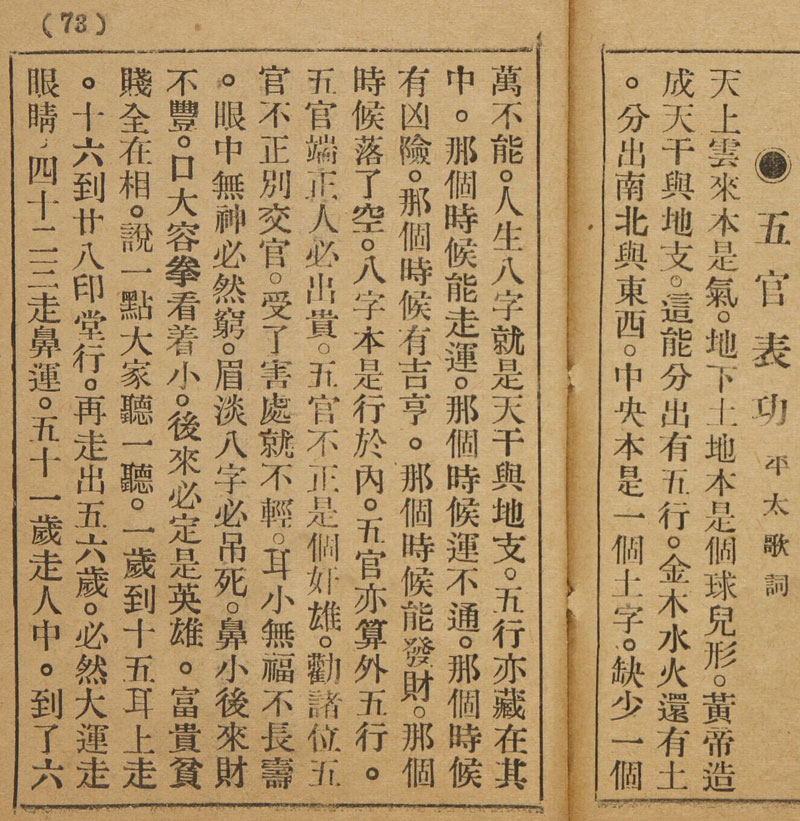 ●五官表功 平太歌詞
天上雲來本是氣。地下土地本是個球兒形。黃帝造
成天干與地支。這能分出有五行。金木水火還有土
。分出南北與東西。中央本是一個土字。缺少一個
(73)
萬不能。人生八字就是天干與地支。五行亦藏在其
中。那個時候能走運。那個時候運不通。那個時候
有凶險。那個時候有吉亨。那個時候能發財。那個
時候落了空。八字本是行於內。五官亦算外五行。
五官端正人必出貴。五官不正是個奸雄。勸諸位五
官不正別交官。受了害處就不輕。耳小無福不長壽
。眼中無神必然窮。眉淡八字必吊死。鼻小後來財
不豐。口大容拳看着小。後來必定是英雄。富貴貧
賤全在相。說一點大家聽一聽。一歲到十五耳上走
。十六到廿八印堂行。再走出五六歲。必然大運走
眼睛，四十二三走鼻運。五十一歲走人中。到了六